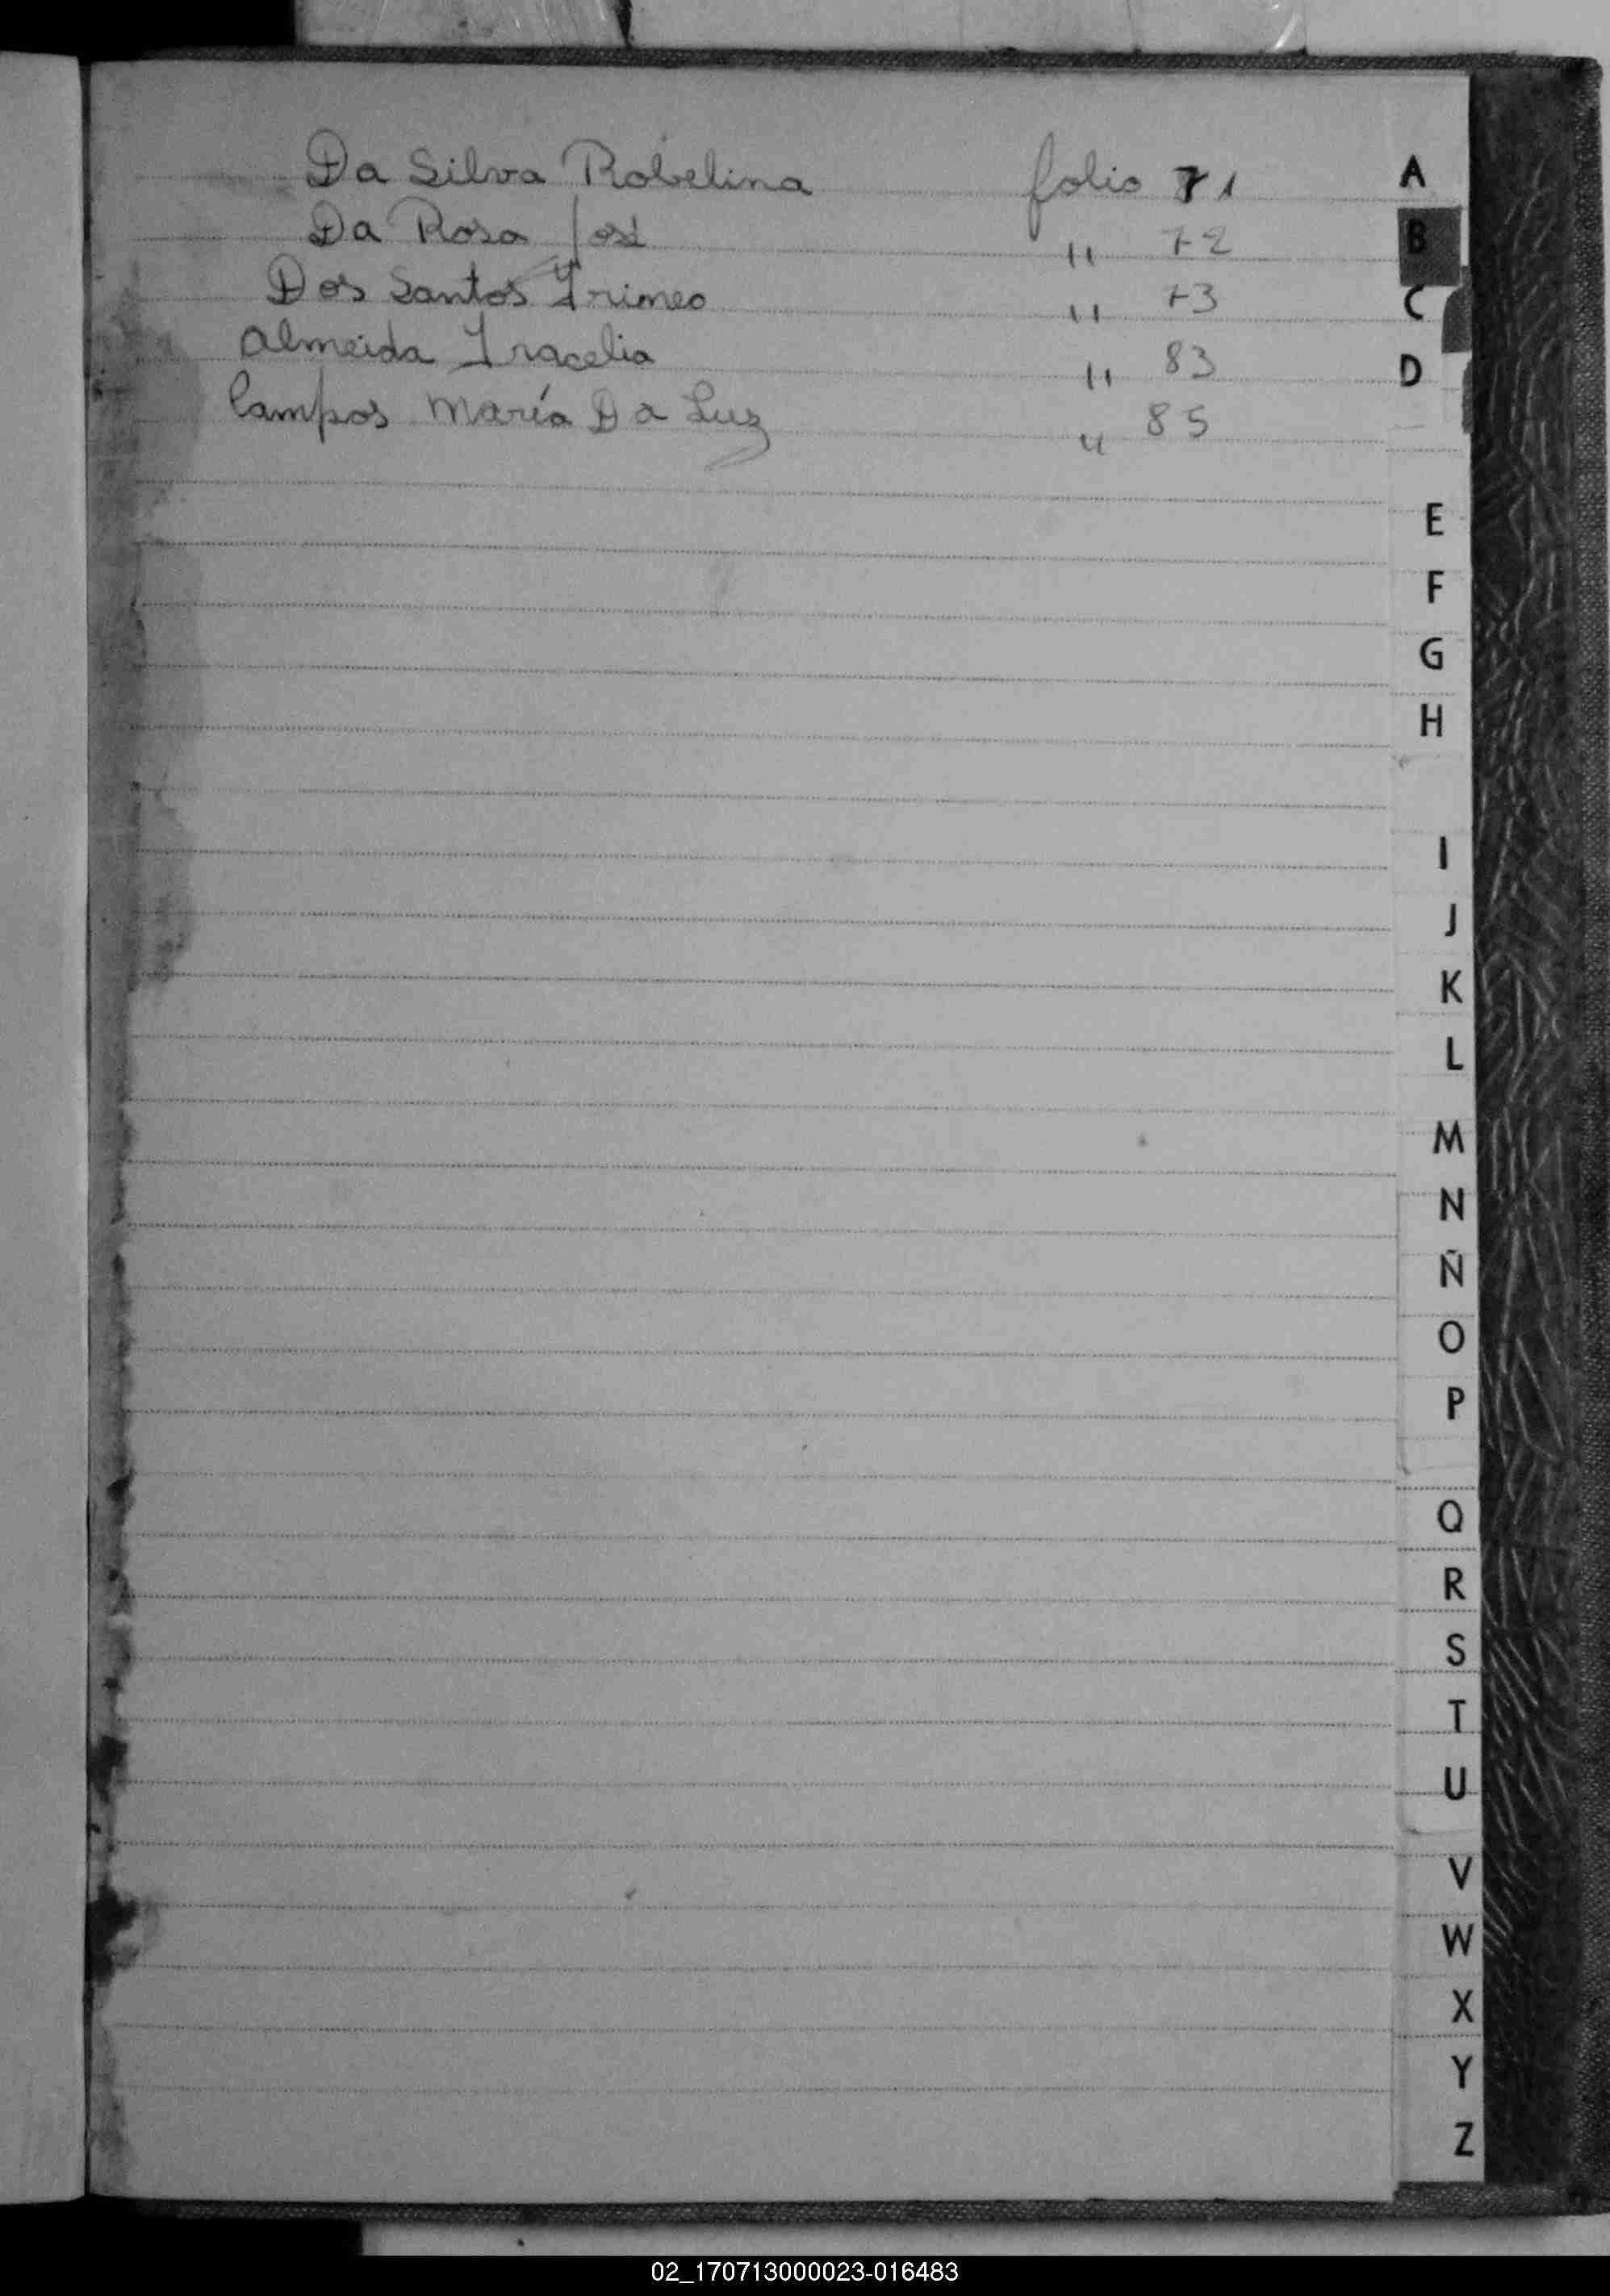 Da Silva Robelina folio 71
Da Rosa José " 72
Dos Santos Irineo " 73
Almeida Iracelia " 83
Campos María Da Luz " 85
A
B
C
D
E
F
G
H
I
J
K
L
M
N
Ñ
O
P
Q
R
S
T
U
V
W
X
Y
Z
02_170713000023-016483